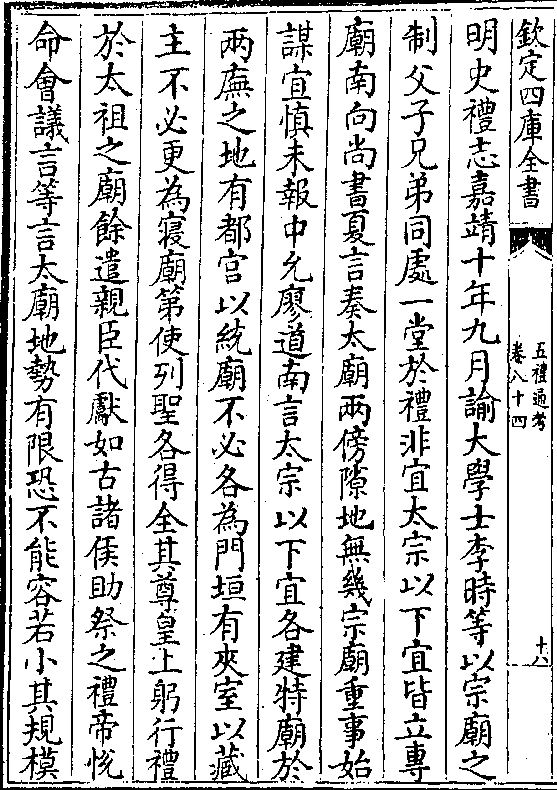 欽定四庫全書
五禮通考
卷八十四
十八
明史禮志嘉靖十年九月諭大學士李時等以宗廟之
制父子兄弟同處一堂於禮非宜太宗以下宜皆立專
廟南向尚書夏言奏太廟兩傍隙地無幾宗廟重事始
謀宜慎未報中允廖道南言太宗以下宜各建特廟於
兩廡之地有都宫以統廟不必各為門垣有夾室以藏
主不必更為寢廟第使列聖各得全其尊皇上躬行禮
於太祖之廟餘遣親臣代獻如古諸侯助祭之禮帝悦
命會議言等言太廟地勢有限恐不能容若小其規模